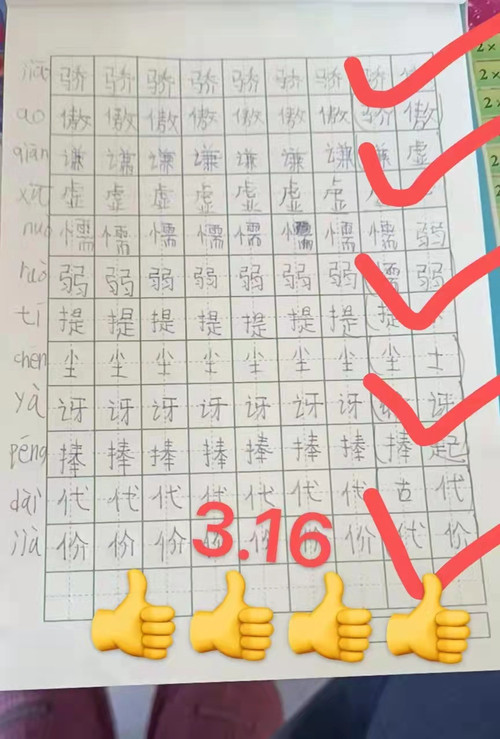 jiāo 骄 骄 骄 骄 骄 骄 骄 (骄
ào 傲 傲 傲 傲 傲 傲 傲 (骄 傲
qiān 谦 谦 谦 谦 谦 谦 谦 谦 虚
xū 虚 虚 虚 虚 虚 虚 虚
nuò 懦 懦 懦 懦 懦 懦 懦 懦 弱
ruò 弱 弱 弱 弱 弱 弱 弱 (懦 弱
tí 提 提 提 提 提 提 提 (提
chén 尘 尘 尘 尘 尘 尘 尘 (尘 土)
yà 讶 讶 讶 讶 讶 讶 讶 讶
pěng 捧 捧 捧 捧 捧 捧 捧 (捧 起)
dài 代 代 代 代 代 代 代 古 代
jià 价 价 价 价 价 价 代 价
3.16
2×
2×
2×